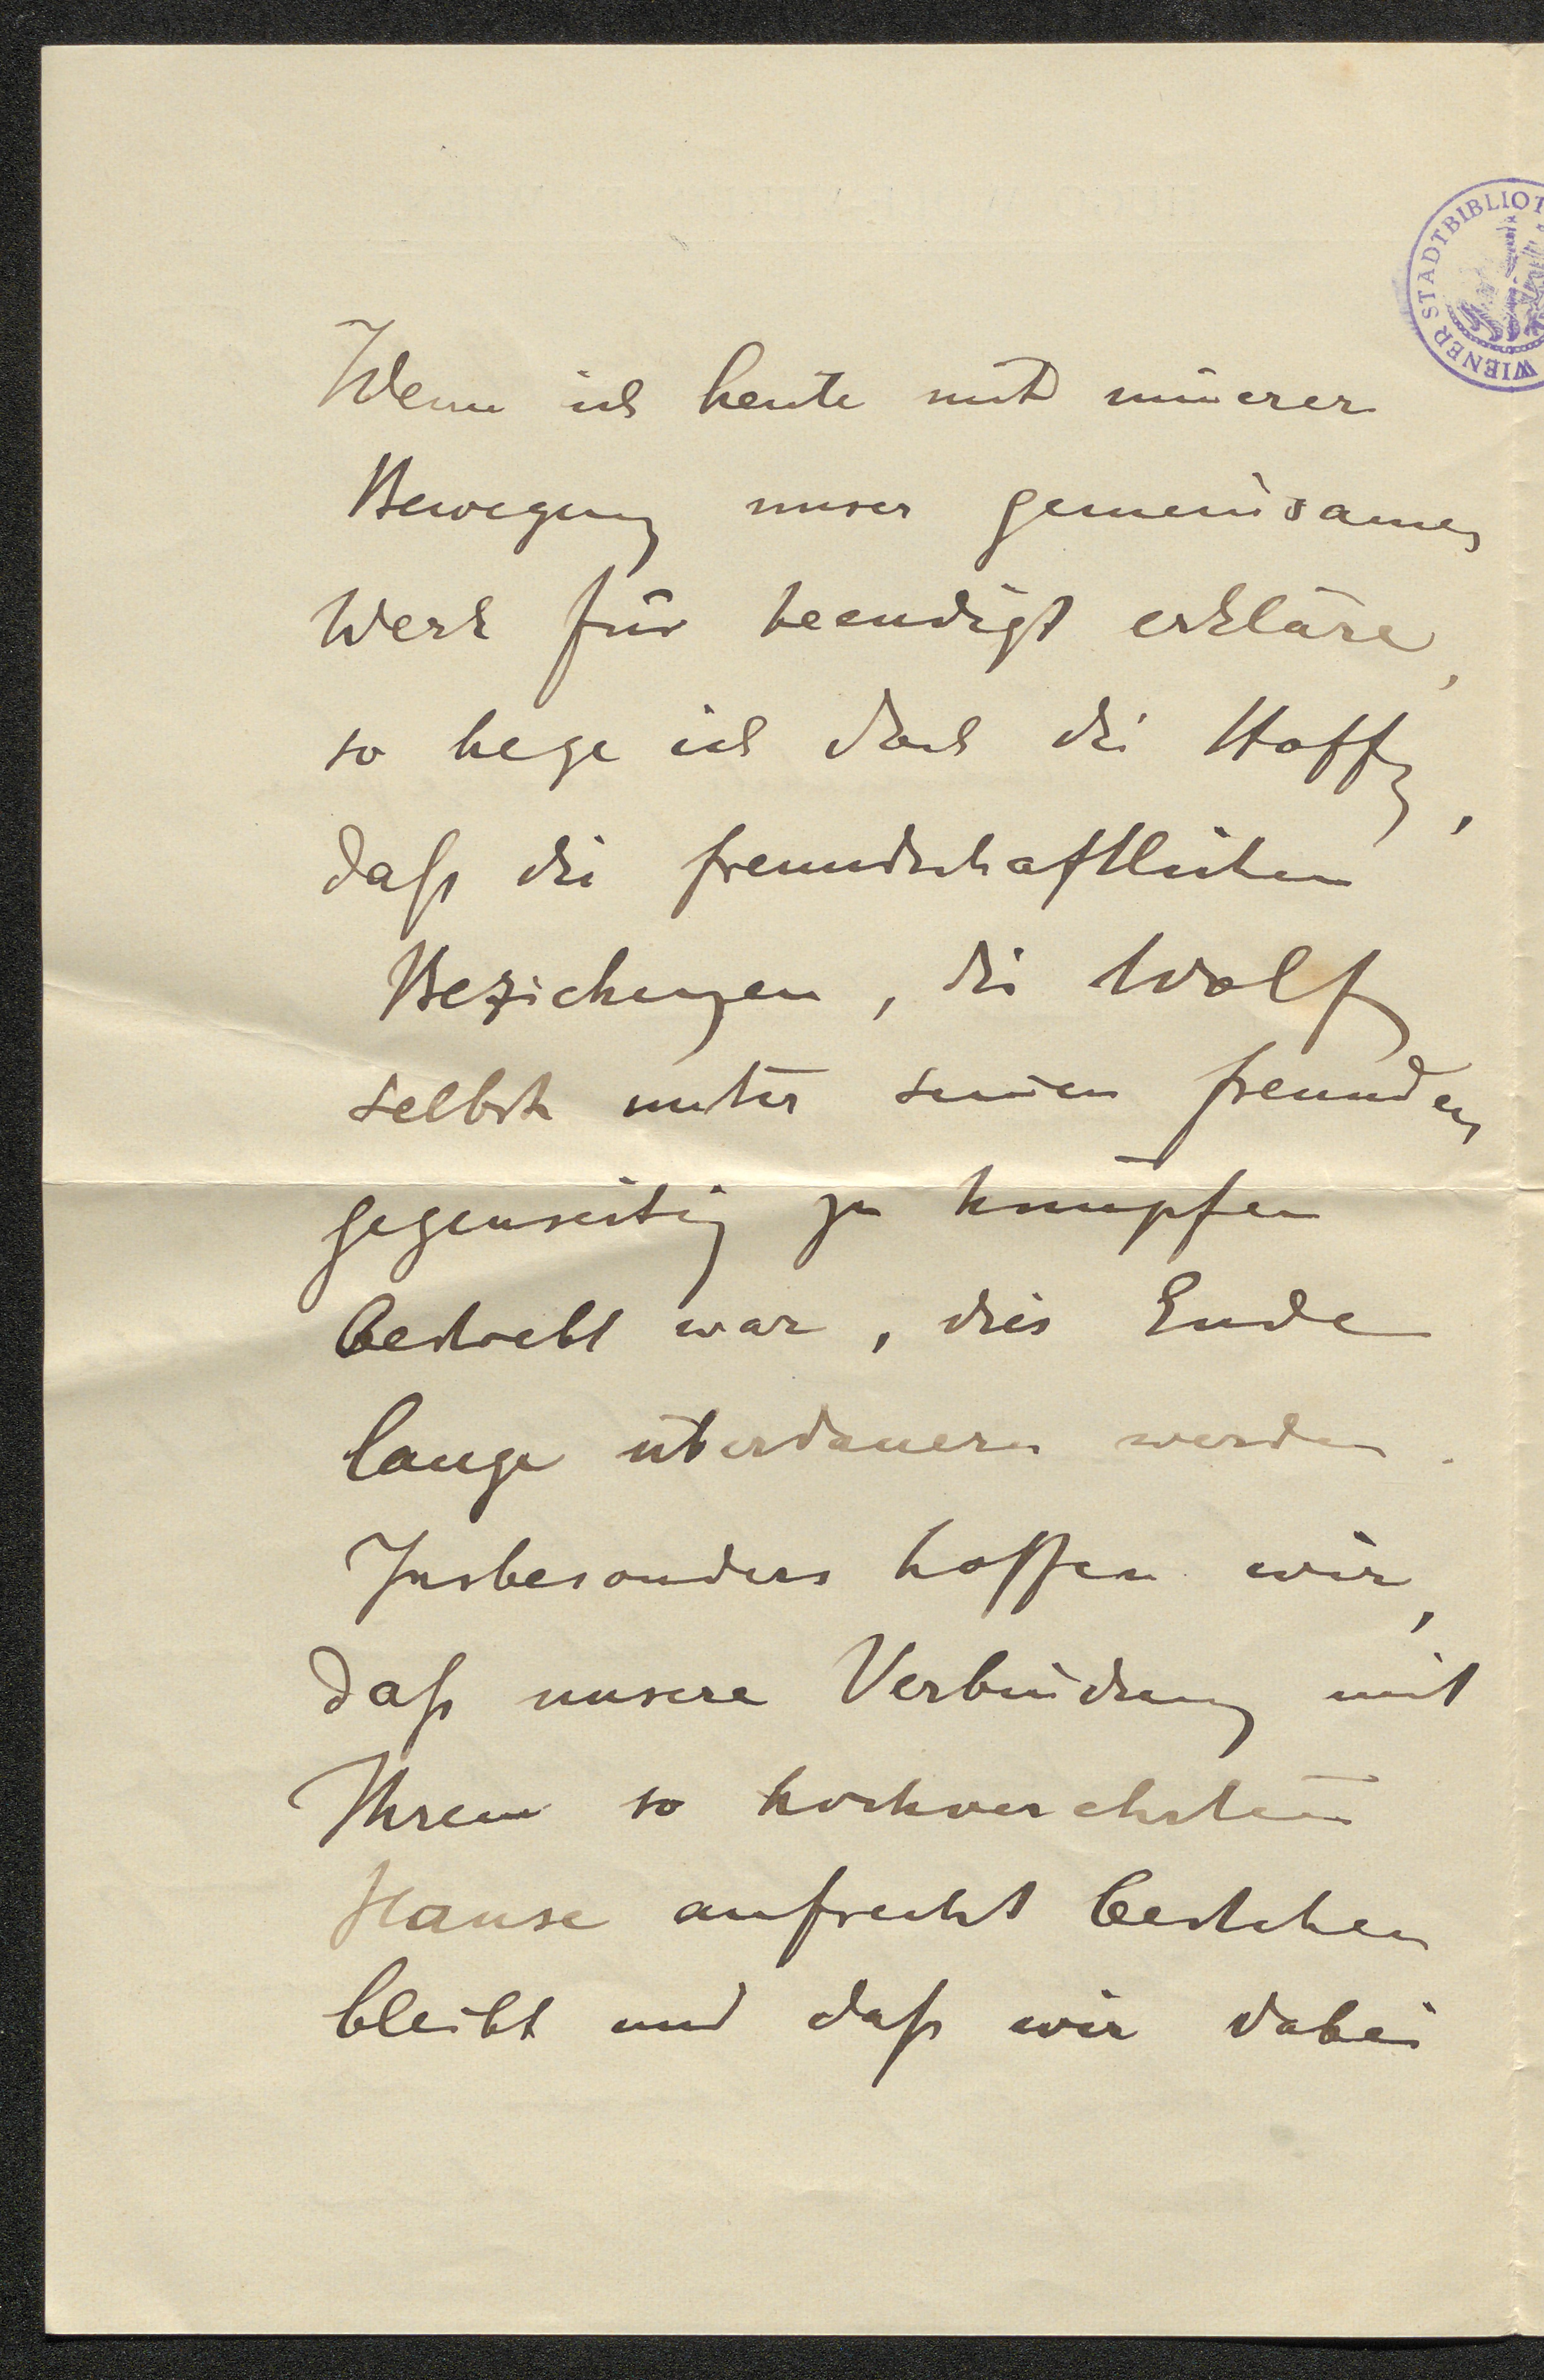 WIENER STADTBIBLIOT
Wenn ich heute mit innerer
Bewegung unser gemeinsames
Werk für beendigt erkläre,
so hege ich doch die Hoffg,
daß die freundschaftlichen
Beziehungen, die Wolf
selbst unter seinen Freunden
gegenseitig zu knüpfen
bestrebt war, dies Ende
lange überdauern werden.
Insbesonders hoffen wir,
daß unsere Verbindung mit
Ihrem so hochverehrten
Hause aufrecht bestehen
bleibt und daß wir dabei